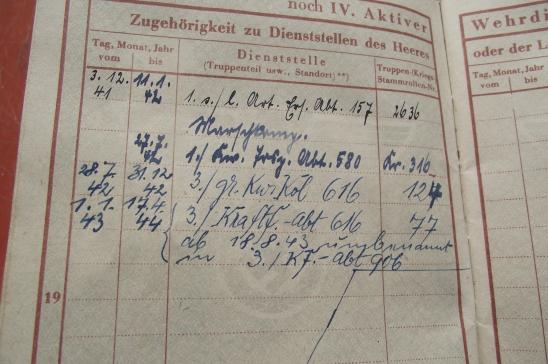 noch IV. Aktiver
Zugehörigkeit zu Dienststellen des Heeres
Tag, Monat, Jahr
vom bis
Dienststelle
(Truppenteil usw., Standort) **)
Truppen-(Kriegs-)
Stammrollen-Nr.
3.12. 11.1.
41 42 1. s./l. Art. Ers. Abt. 157 2636
27.7.
42 1./ Kw. Abt. 580 Kr. 316
28.7. 31.12
42 42 3./ gr. Kw. Kol 616 124
1.1. 17.4
43 44 3./ Kraftf.-Abt 616 77
ab 18.8.43 umbenannt
in 3./Kf.-Abt 906
19
Wehrdi
oder der L
Tag, Monat, Jahr
vom bis